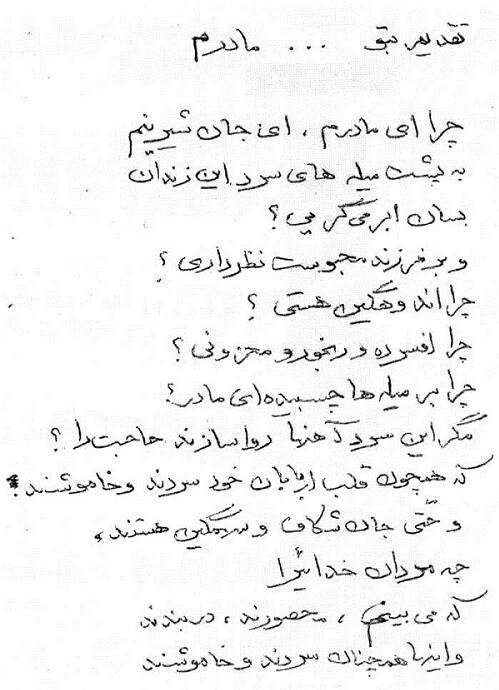 تقدیم بتو ... مادرم
چرا ای مادرم ، ای جان شیرینم
به پشت میله های سرد این زندان
بسان ابر میگریی ؟
و بر فرزند محبوست نظر داری ؟
چرا اندوهگین هستی ؟
چرا افسرده و رنجور و محزونی ؟
چرا بر میله ها چسبیده ای مادر ؟
مگر این سرد آهنها روا سازند حاجت را ؟
که همچون قلب اربابان خود سردند و خاموشند ؟
و حتّی جان شکاف و سهمگین هستند ،
چه مردان خدائی را
که می بینم ، محصورند ، در بندند
و اینها همچنان سردند و خاموشند